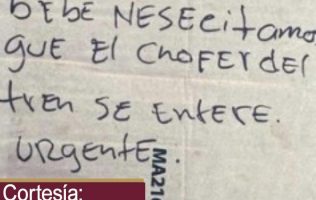 DEbE NESECitamo
QUE El ChOFEr del
tren SE EntErE.
URgentE.
MA216
Cortesía: